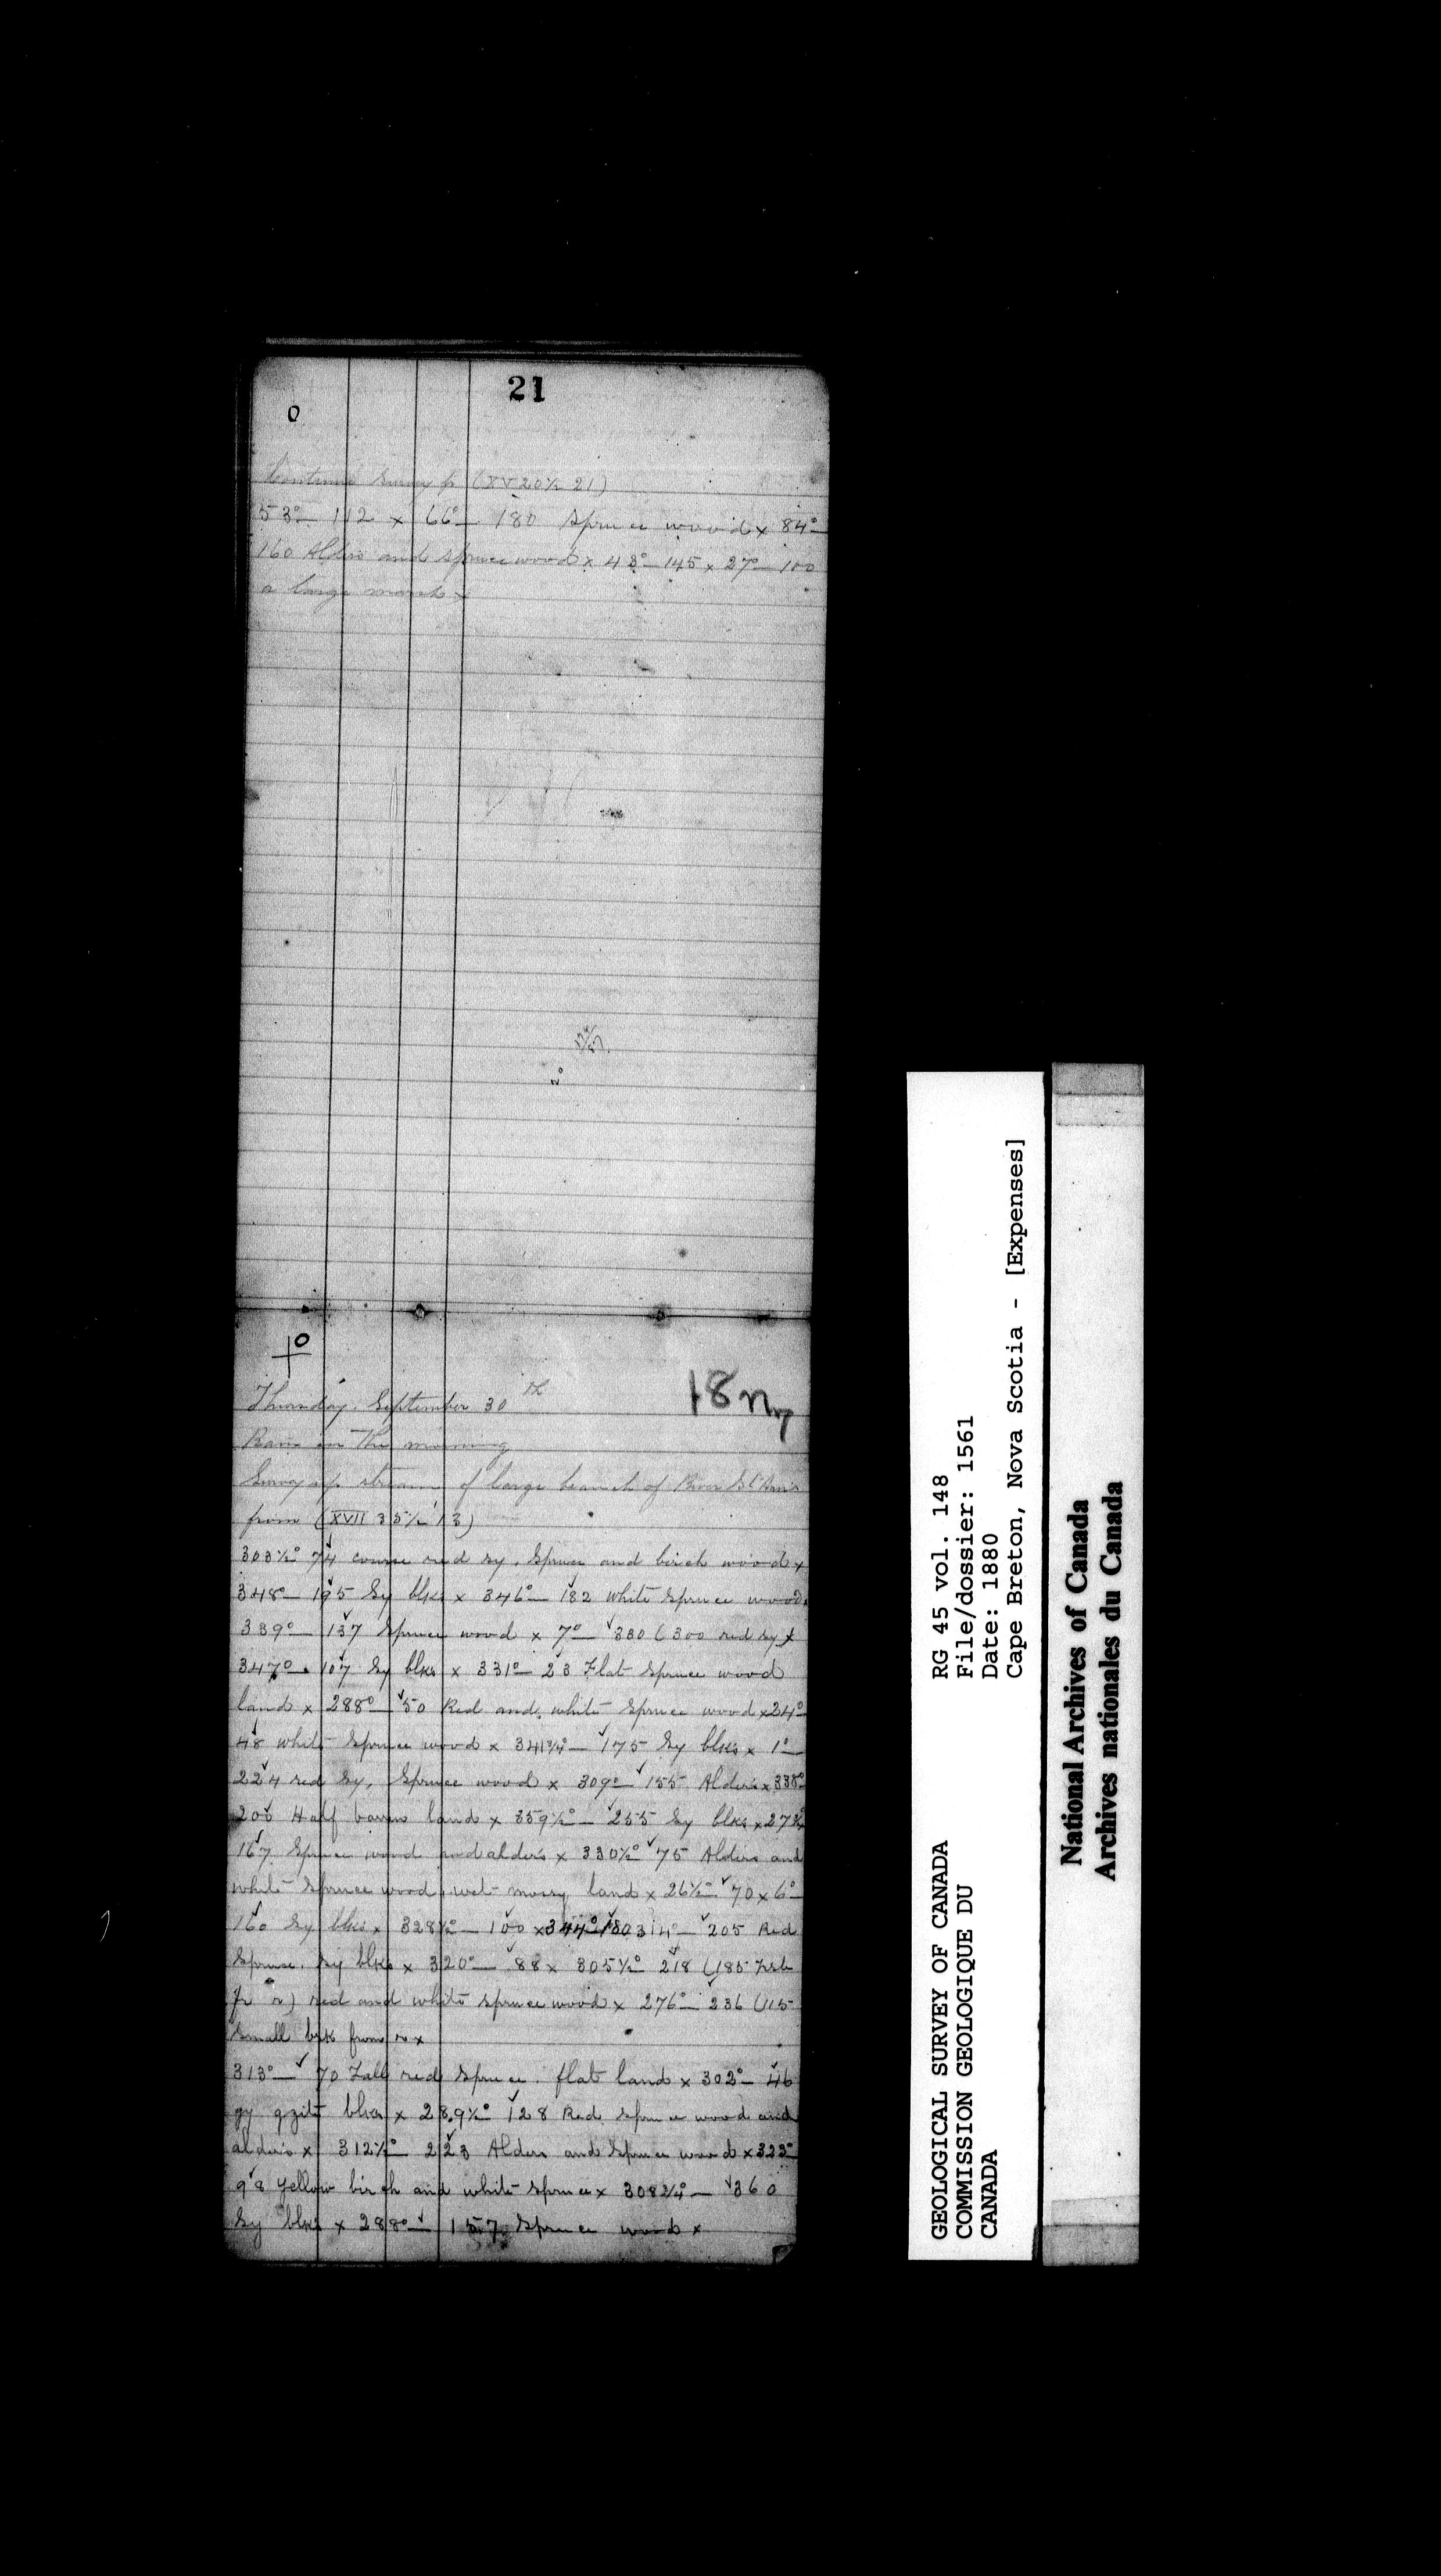 21
0
Continue Survey fr (XV 20½ 21)
53°— 112 x 66°— 180 Spruce wood x 84°—
160 Alders and spruce wood x 43°— 145 x 27°— 100
a large marsh x
2°
+0
18 n7
Thursday. September 30th
Rain in the morning
Survey up stream of large branch of River St Anns
from (XVII 35½ 13)
303½° 74 course red sy, Spruce and birch wood x
348°— 195 Sy blks x 346°— 182 white spruce wood x
339°— 137 Spruce wood x 7°— 330 (300 red sy x
347°. 107 Sy blks x 331°— 23 Flat spruce wood
land x 288°— 50 Red and white spruce wood x 24°—
48 white spruce wood x 341¾°— 175 Sy blks x 1°—
224 red sy, Spruce wood x 309°— 155 Alders x 338°
200 Half barren land x 359½°— 255 Sy blks x 273½
167 Spruce wood and alders x 330½° 75 Alders and
white spruce wood, wet mossy land x 26½° 70 x 6°—
160 Sy blks x 328½°— 100 x 344° 180 314°— 205 Red
Spruce. Sy blks x 320°— 88 x 305½° 218 (185
fr r) red and white spruce wood x 276°— 236 (115
Small brk from r x
313°— 70 Tall red spruce. flat land x 302°— 46
gy qzite blks x 289½° 128 Red spruce wood and
alders x 312½° 223 Alders and spruce wood x 323°—
98 yellow birch and white spruce x 308¾°— 360
Sy blks x 288°— 157 Spruce wood x
GEOLOGICAL SURVEY OF CANADA
COMMISSION GEOLOGIQUE DU
CANADA
RG 45 vol. 148
File/dossier: 1561
Date: 1880
Cape Breton, Nova Scotia - [Expenses]
National Archives of Canada
Archives nationales du Canada